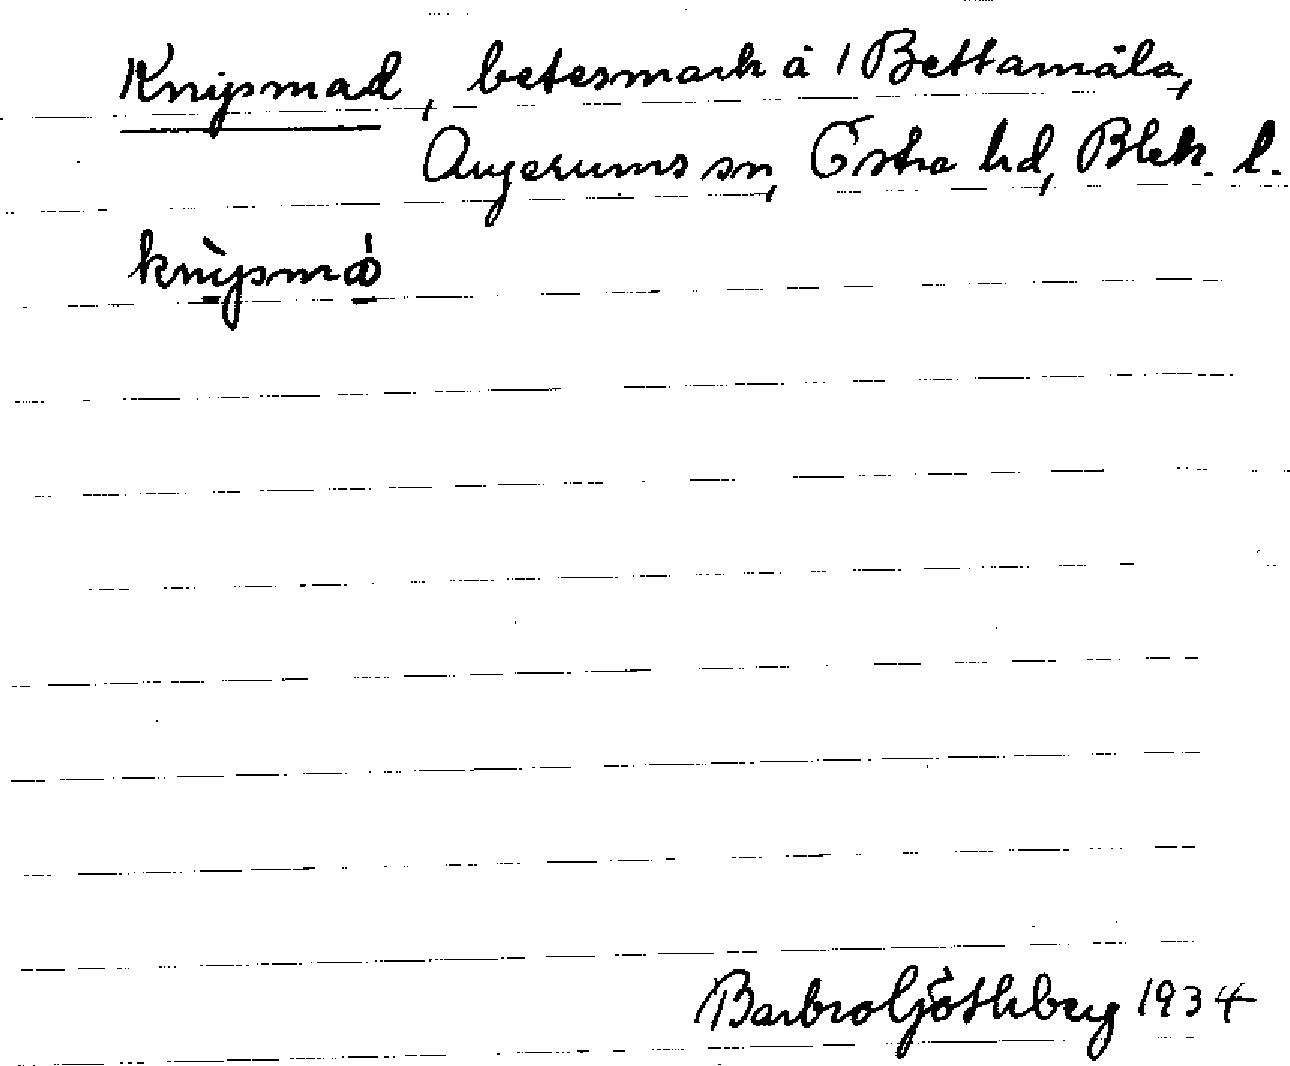 Knipsmad, betesmark å 1 Bettamåla,
Augerums sn, Östra hd, Blek. l.
Barbro Göthberg 1934